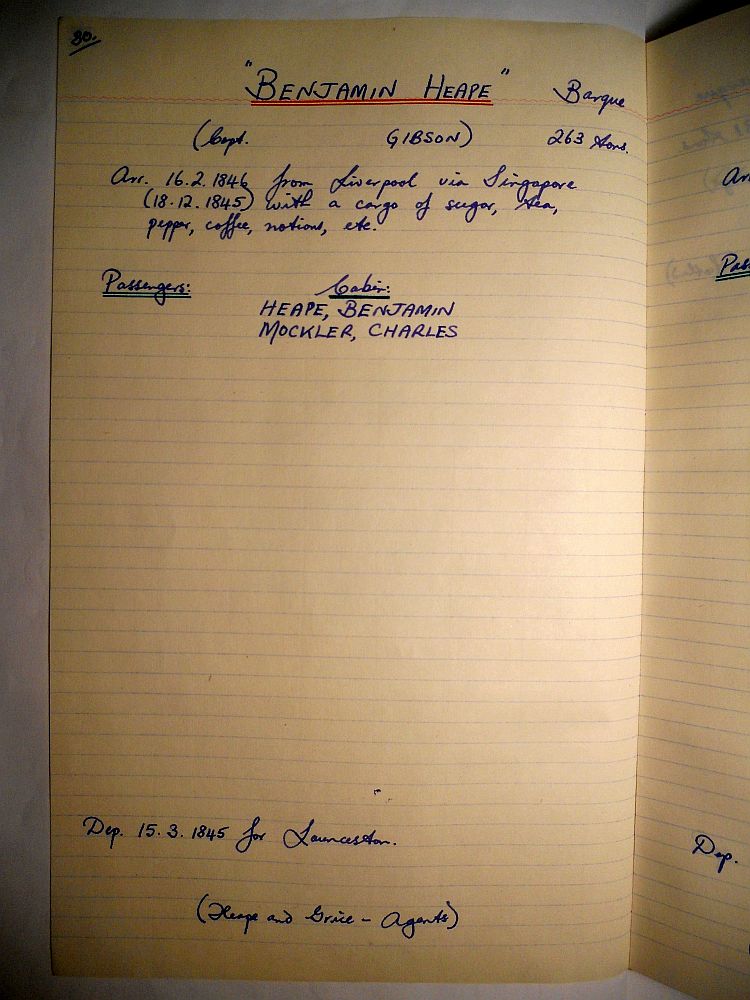 80.
"BENJAMIN HEAPE" Barque
(Capt. GIBSON) 263 tons.
Arr. 16.2.1846 from Liverpool via Singapore
(18.12.1845) with a cargo of sugar, tea,
pepper, coffee, notions, etc.
Passengers: Cabin:
HEAPE, BENJAMIN
MOCKLER, CHARLES
Dep. 15.3.1845 for Launceston.
(Heape and Grice - Agents)
Arr
Pas
Dep.